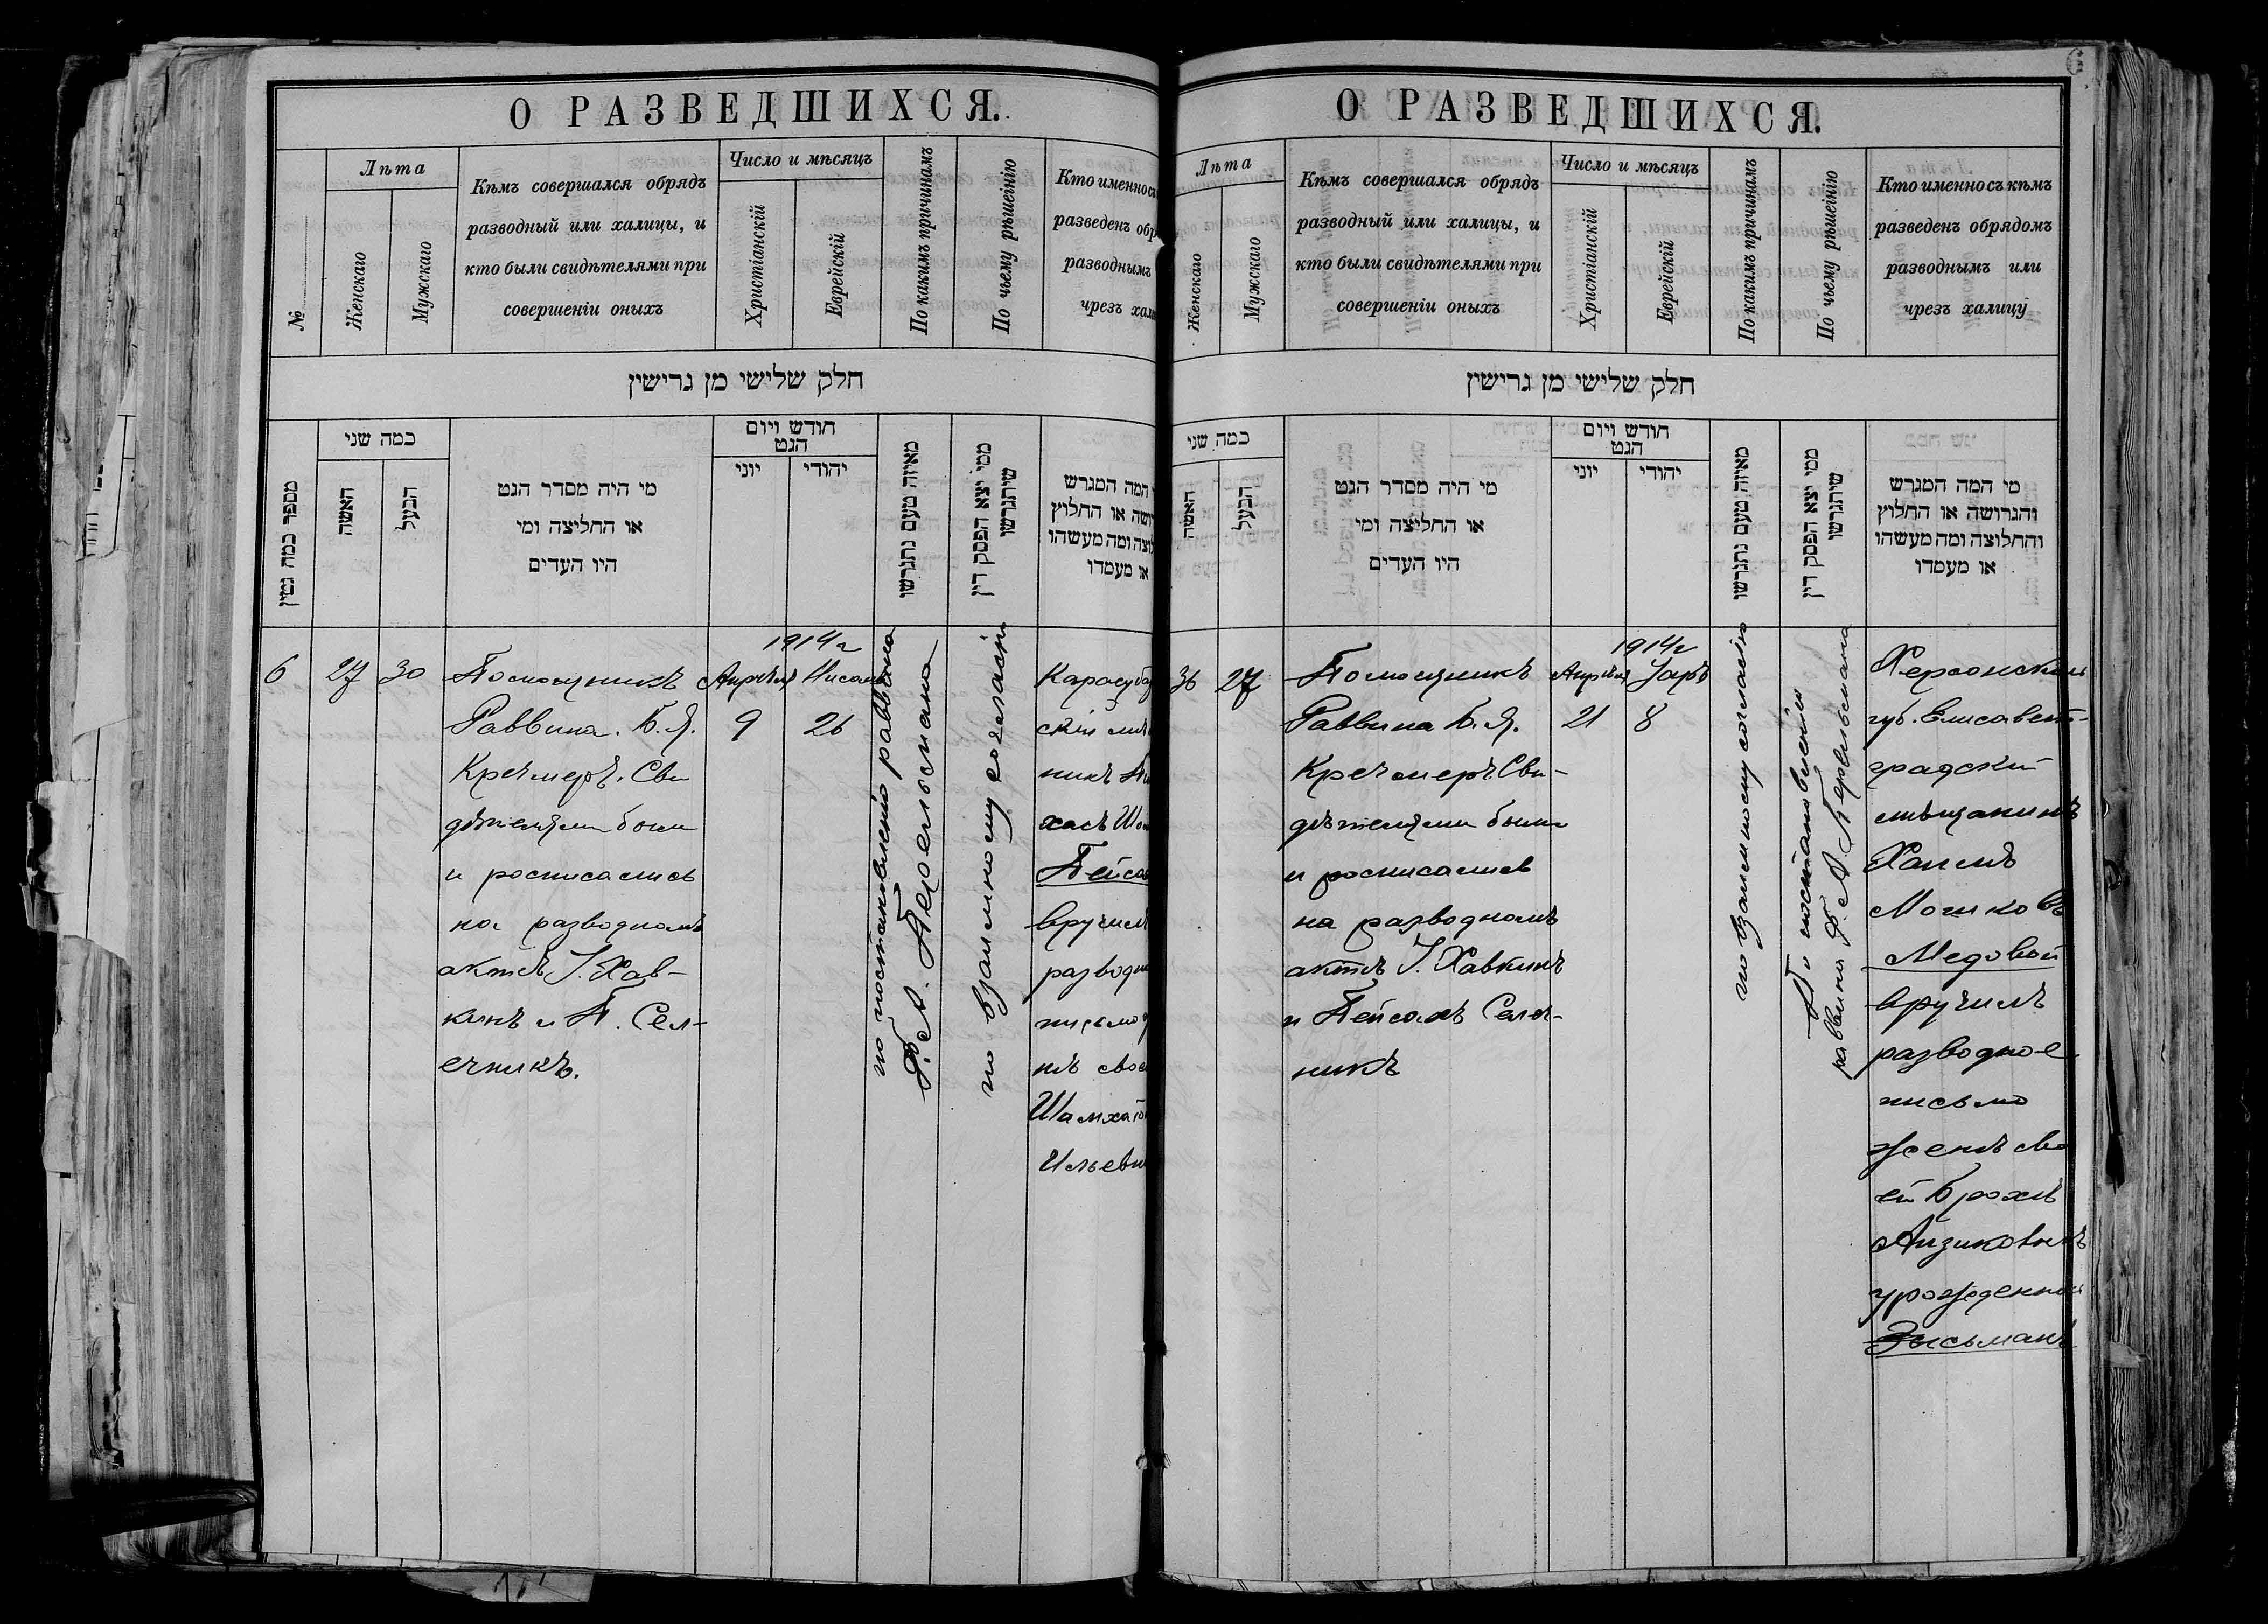 О РАЗВЕДШИХСЯ.
№
Лѣта
Женскаго
Мужскаго
Кѣмъ совершался обрядъ
разводный или халицы, и
кто были свидѣтелями при
совершеніи оныхъ
Число и мѣсяцъ
Христіанскій
Еврейскій
По какимъ причинамъ
По чьему рѣшенію
Кто именно съ
разведенъ обр
разводнымъ
чрезъ хал
חלק שלישי מן גרישין
מספר כמה גטין
כמה שני
האשה
הבעל
מי היה מסדר הגט
או החליצה ומי
היו העדים
חודש ויום
הגט
יוני
יהודי
מאיזה טעם נתגרשו
ממי יצא הפסק דין
שיתגרשו
המה המגרש
ושה או החלוץ
לוצה ומה מעשהו
או מעמדו
6
27
30
Помощникъ
Раввина. Б. Я.
Кречмеръ. Сви
дѣтелями были
и росписались
на разводномъ
актѣ І. Хав-
кинъ и П. Сел-
ечникъ.
1914 г
Апрѣля Нисана
9 26
по постановленію раввина
Ф. А. Перельсмана
по взаимному согласію
Карасуба
скій мѣ
никъ Пи
хасъ Шо
Пейса
вручилъ
разводн
письмо
нѣ свое
Шамха
Ильевн
О РАЗВЕДШИХСЯ.
Лѣта
Женскаго
Мужскаго
Кѣмъ совершался обрядъ
разводный или халицы, и
кто были свидѣтелями при
совершеніи оныхъ
Число и мѣсяцъ
Христіанскій
Еврейскій
По какимъ причинамъ
По чьему рѣшенію
Кто именно съ кѣмъ
разведенъ обрядомъ
разводнымъ или
чрезъ халицу
חלק שלישי מן גרישין
כמה שני
האשה
הבעל
מי היה מסדר הגט
או החליצה ומי
היו העדים
חודש ויום
הגט
יוני
יהודי
מאיזה טעם נתגרשו
ממי יצא הפסק דין
שיתגרשו
מי המה המגרש
והגרושה או החלוץ
והחלוצה ומה מעשהו
או מעמדו
36
27
Помощникъ
Раввина Б. Я.
Кречмеръ Сви-
дѣтелями были
и росписались
на разводномъ
актѣ І. Хавкинъ
и Пейсахъ Селеч-
никъ
1914 г
Апрѣля Іаръ
21 8
по взаимному согласію
По постановленію
раввина Ф. А. Перельсмана
Херсонской
губ. Елисавет-
градскій
мѣщанинъ
Хаимъ
Мошковъ
Медовой
вручилъ
разводное
письмо
женѣ сво
ей Брохѣ
Айзиковнѣ
урожденной
Зысьманъ